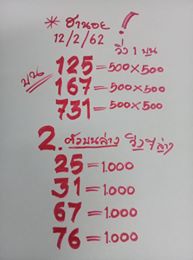 * ฮานอย
12/2/62
วิ่ง 1 บน
บน
125 = 500×500
167 = 500×500
731 = 500×500
2. ตัวบนล่าง วิ่ง 7 ล่าง
25 = 1.000
31 = 1.000
67 = 1.000
76 = 1.000